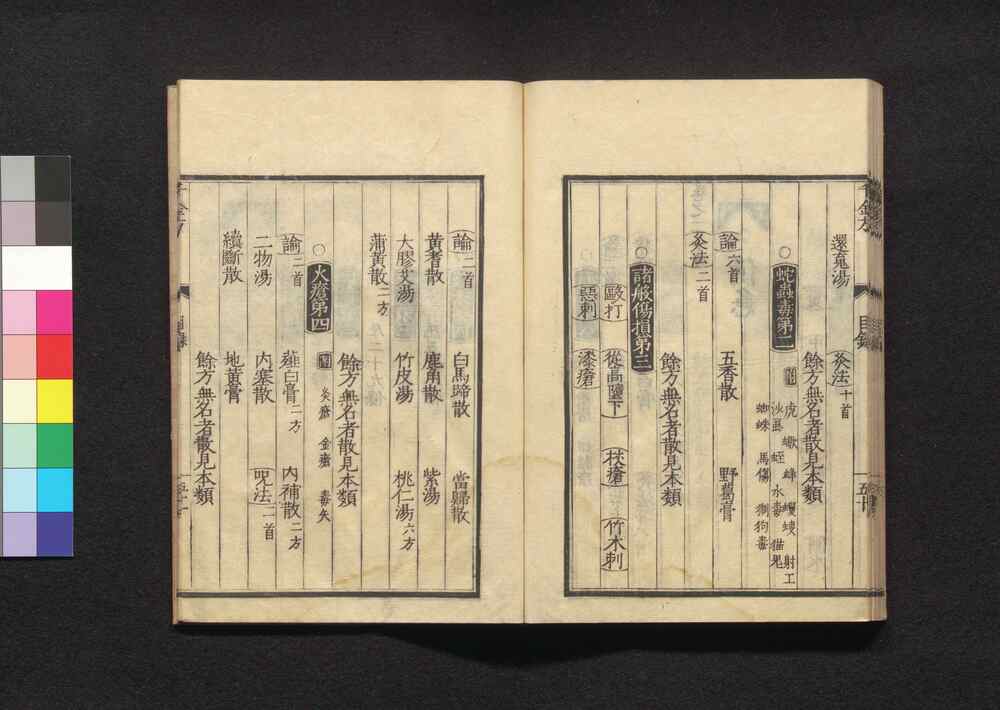 還魂湯 灸法十首
餘方無名者散見本類
○蛇蟲毒第二 附 虎 蠍 蜂 蠼螋 射工
沙虱 蛭 水毒 猫鬼
蜘蛛 馬傷 猘狗毒
論六首 五香散 野葛膏
灸法二首
餘方無名者散見本類
○諸般傷損第三
毆打 從高墮下 杖瘡 竹木刺
惡刺 漆瘡
千金方 目録
論二首 白馬蹄散 當歸散
黃耆散 鹿角散 紫湯
大膠艾湯 竹皮湯 桃仁湯六方
蒲黃散二方
餘方無名者散見本類
○火瘡第四 附 灸瘡 金瘡 毒矢
論二首 薤白膏二方 內補散二方
二物湯 內塞散 呪法一首
續斷散 地黃膏
餘方無名者散見本類